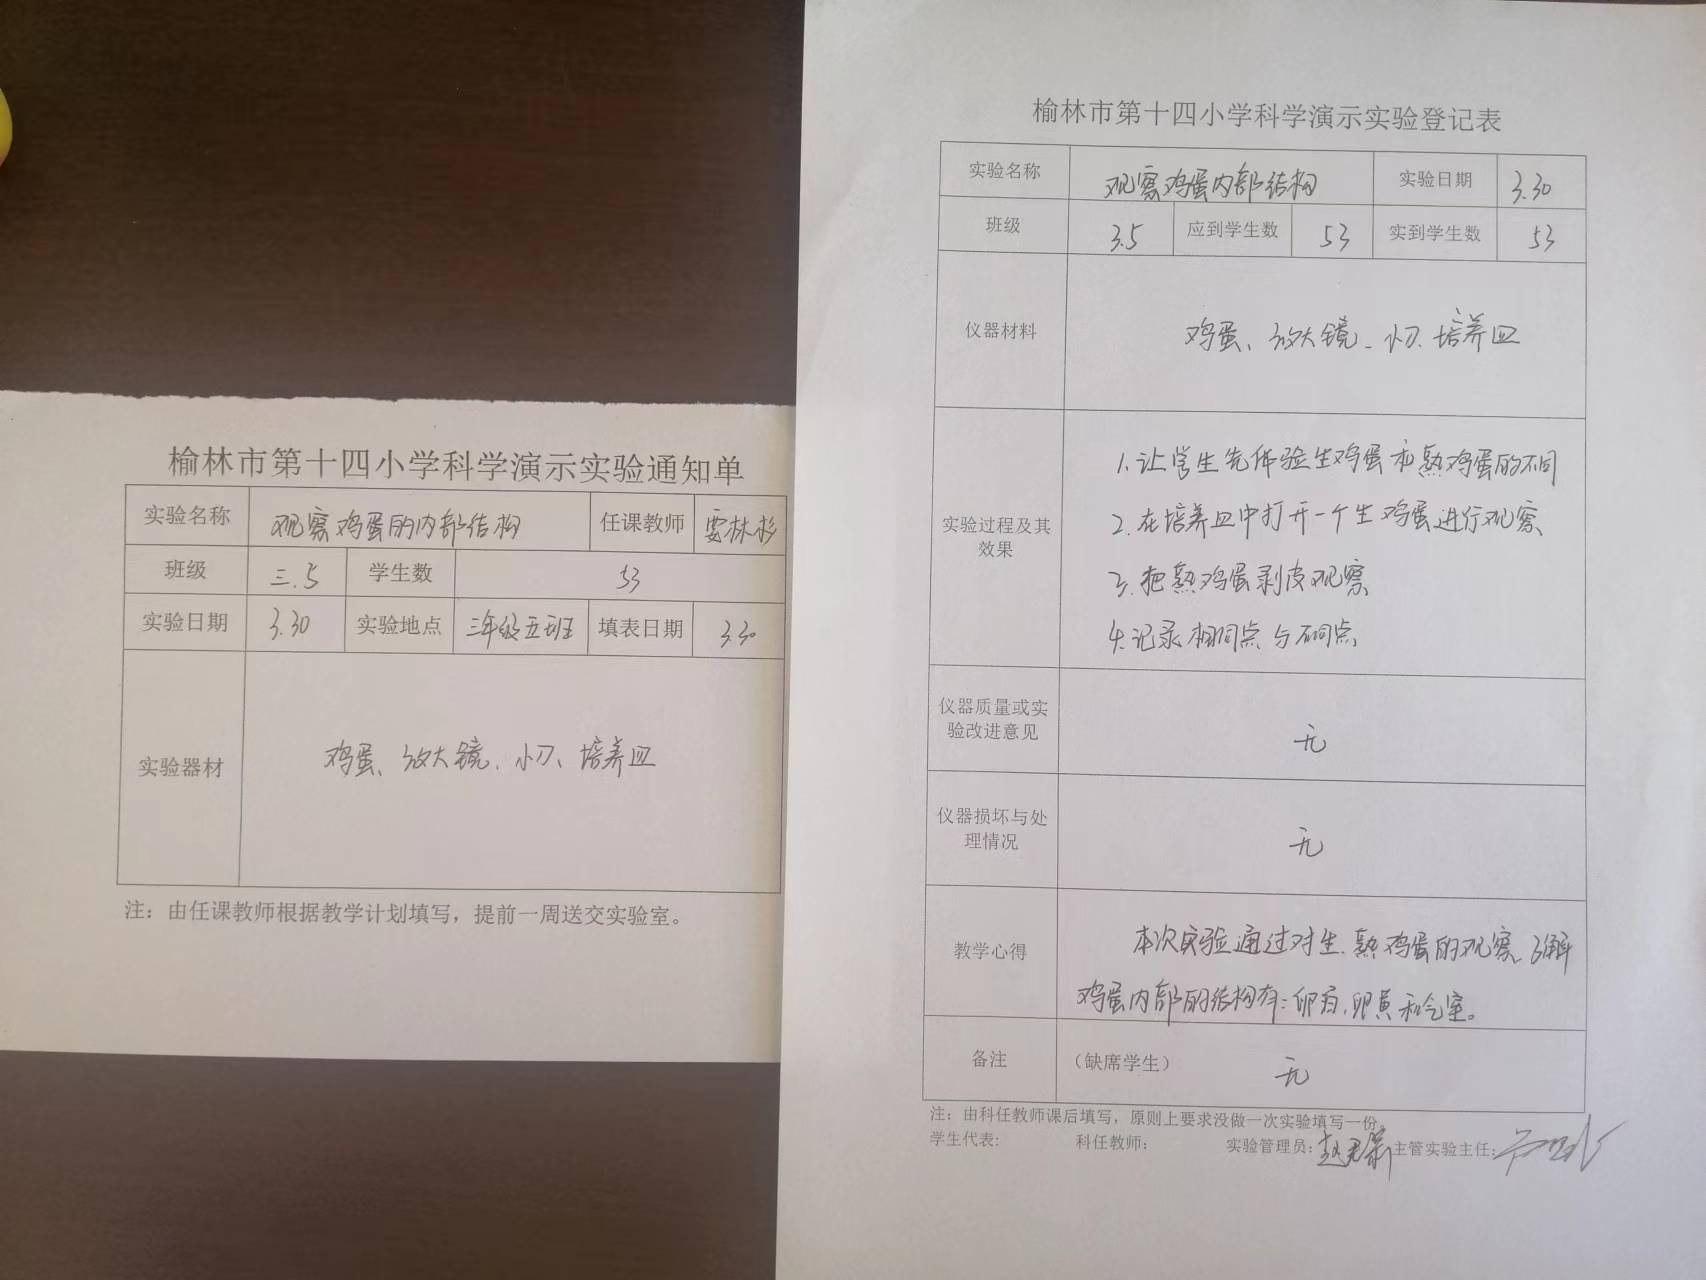 榆林市第十四小学科学演示实验通知单
实验名称 观察鸡蛋的内部结构 任课教师 林杉
班级 三.5 学生数 53
实验日期 3.30 实验地点 三年级五班 填表日期 3.30
实验器材 鸡蛋、放大镜、小刀、培养皿
注：由任课教师根据教学计划填写，提前一周送交实验室。
榆林市第十四小学科学演示实验登记表
实验名称 观察鸡蛋内部结构 实验日期 3.30
班级 3.5 应到学生数 53 实到学生数 53
仪器材料 鸡蛋、放大镜、小刀、培养皿
实验过程及其
效果
1.让学生先体验生鸡蛋和熟鸡蛋的不同
2.在培养皿中打开一个生鸡蛋进行观察
3.把熟鸡蛋剥皮观察
4.记录相同点与不同点
仪器质量或实
验改进意见
无
仪器损坏与处
理情况
无
教学心得
本次实验通过对生、熟鸡蛋的观察，了解
鸡蛋内部的结构有：卵白、卵黄和气室。
备注 （缺席学生） 无
注：由科任教师课后填写，原则上要求没做一次实验填写一份。
学生代表： 科任教师： 实验管理员： 主管实验主任：